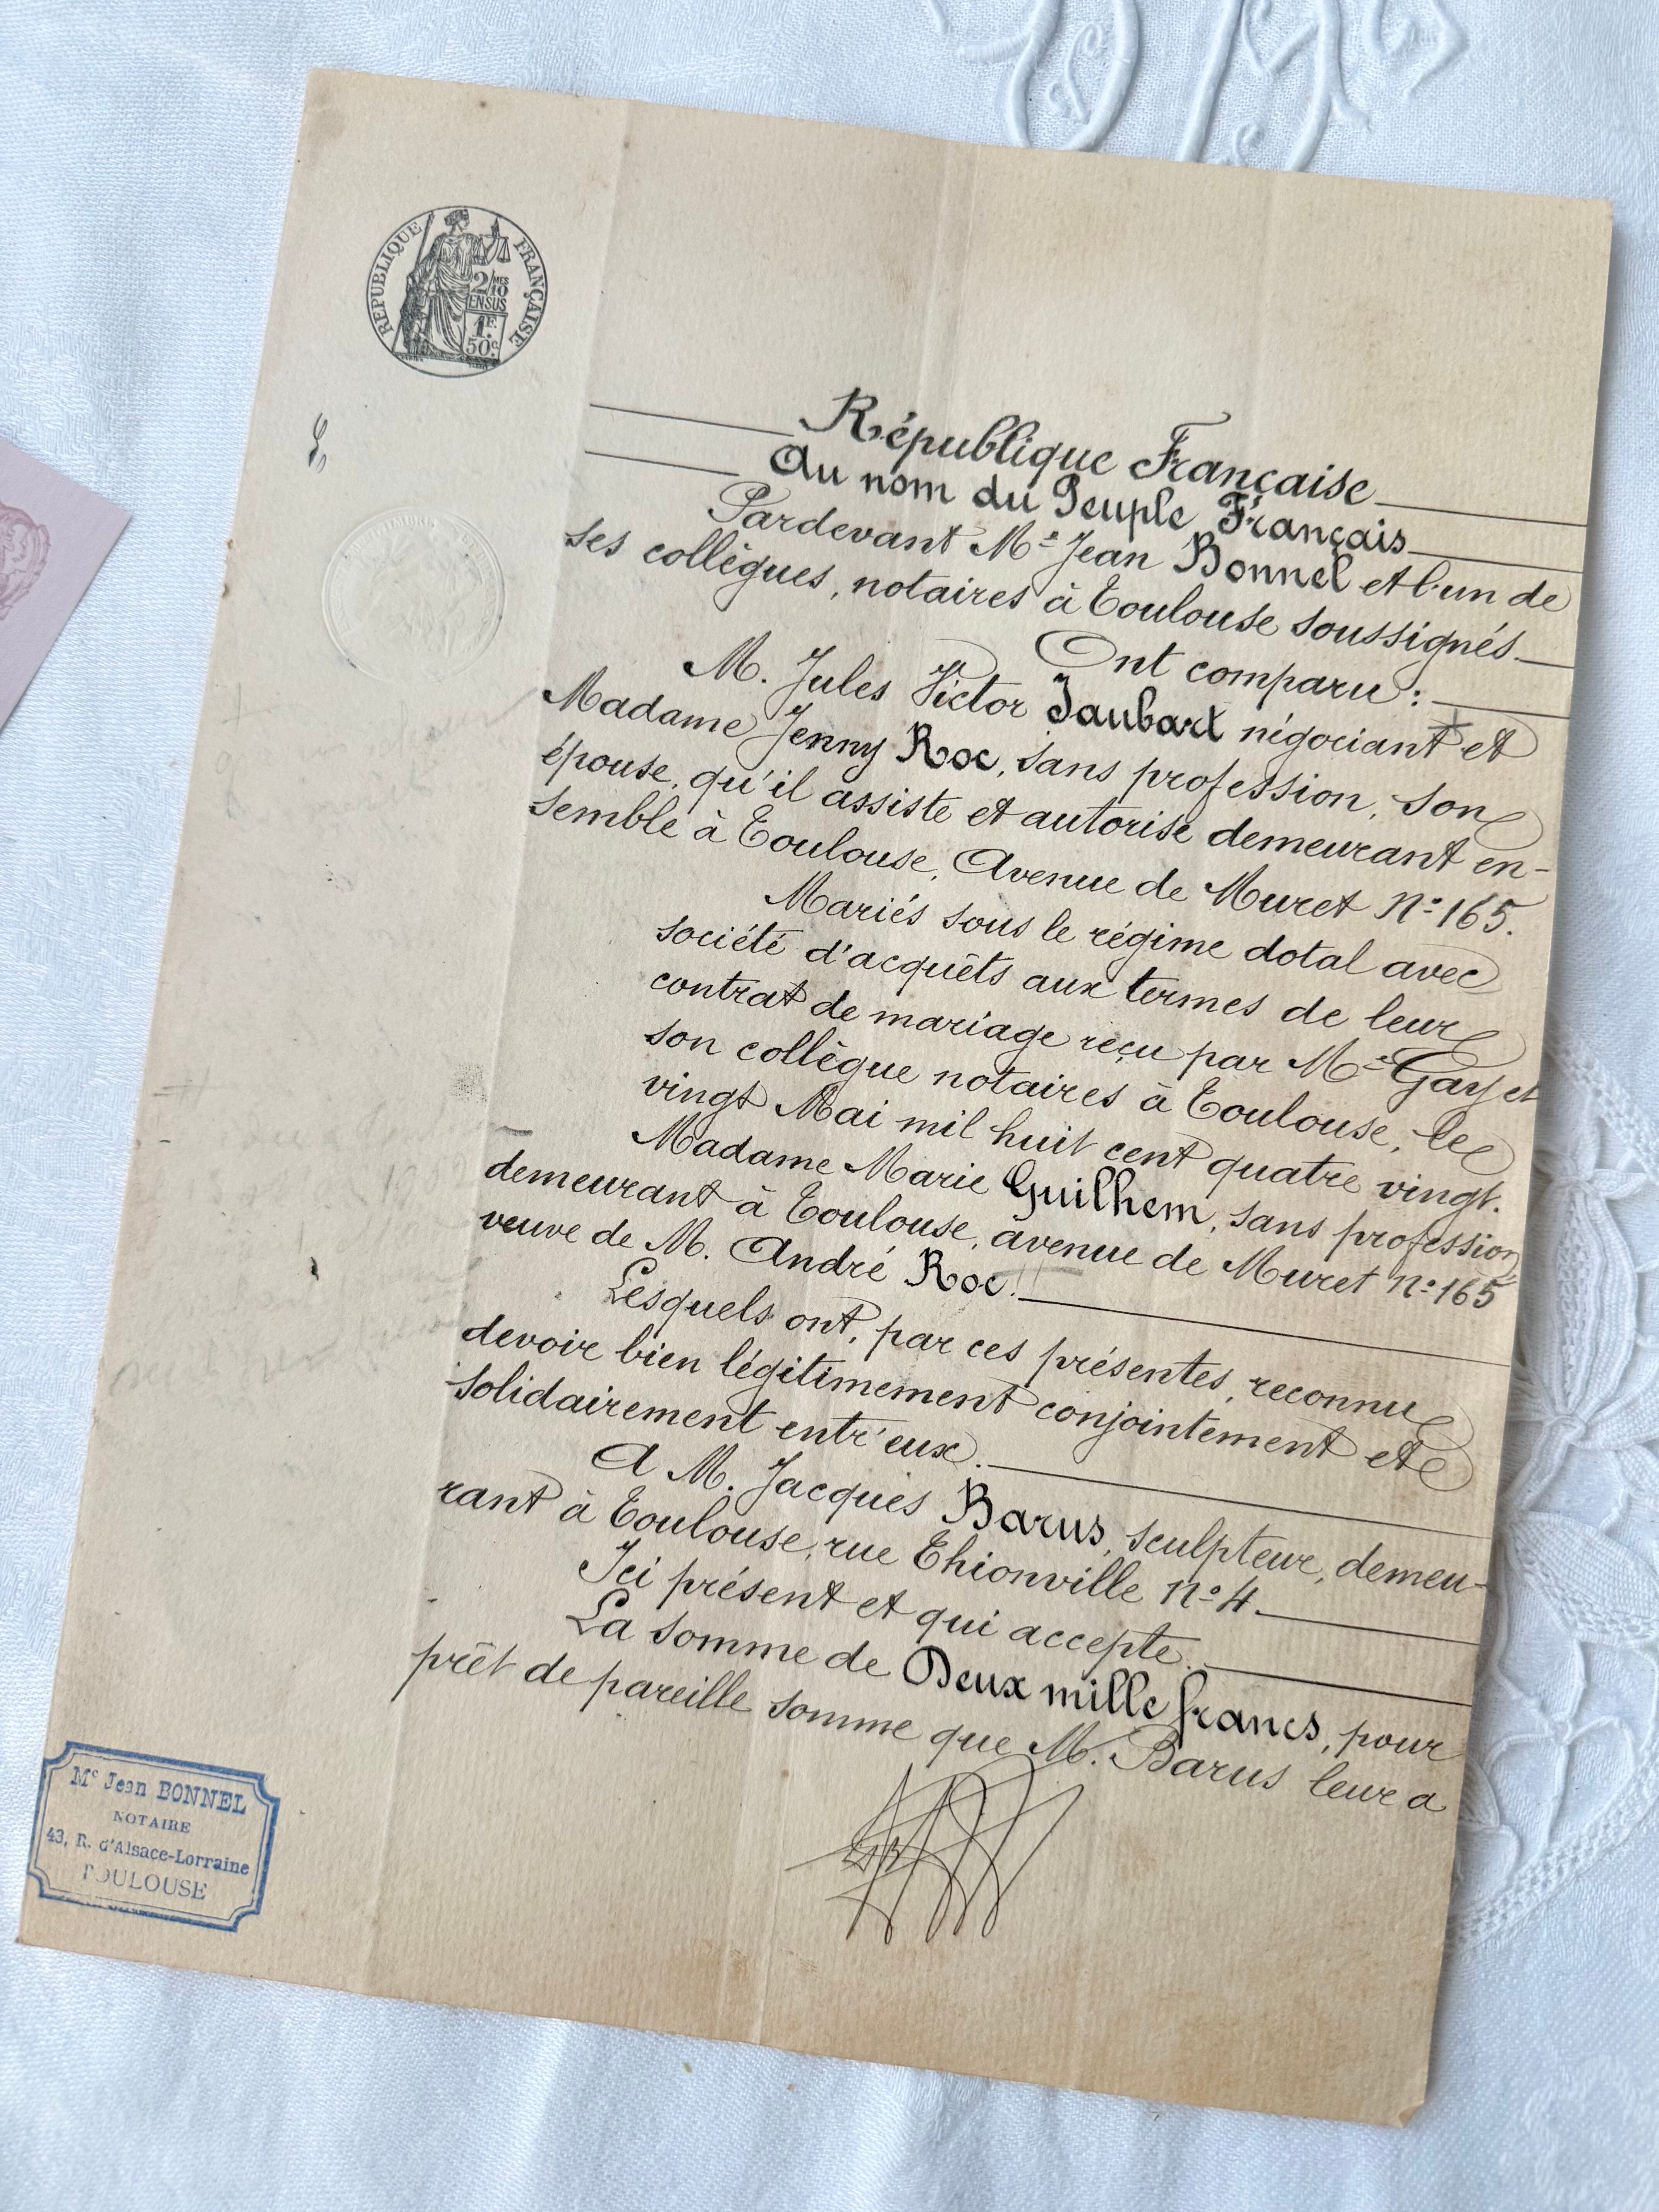 REPUBLIQUE FRANÇAISE
2/10 MES
EN SUS
1F.
50c.
TIMBRE
République Française
Au nom du Peuple Français
Pardevant Me Jean Bonnel et l'un de
ses collègues, notaires à Toulouse soussignés
Ont comparu :
M. Jules Victor Jaubart négociant et
Madame Jenny Roc, sans profession, son
épouse, qu'il assiste et autorise demeurant en-
semble à Toulouse, Avenue de Muret No 165.
Mariés sous le régime dotal avec
société d'acquêts aux termes de leur
contrat de mariage reçu par Me Gay et
son collègue notaires à Toulouse, le
vingt Mai mil huit cent quatre vingt.
Madame Marie Guilhem, sans profession,
demeurant à Toulouse, avenue de Muret no 165
veuve de M. André Roc.
Lesquels ont, par ces présentes, reconnu
devoir bien légitimement conjointement et
solidairement entr'eux.
A M. Jacques Barus, sculpteur, demeu-
rant à Toulouse, rue Thionville no 4.
Ici présent et qui accepte.
La somme de Deux mille francs, pour
prêt de pareille somme que M. Barus leur a
Me Jean BONNEL
NOTAIRE
43, R. d'Alsace-Lorraine
TOULOUSE